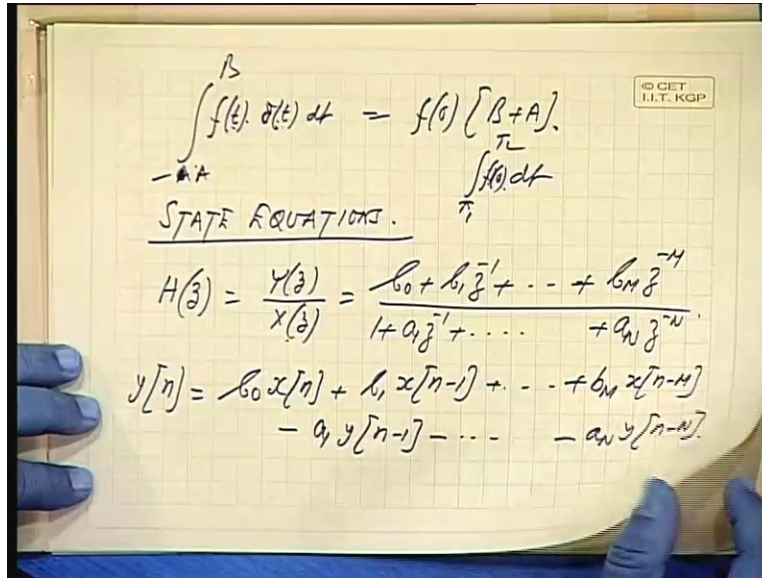 © CET
I.I.T. KGP
∫_{-A}^{B} f(t). δ(t) dt = f(0) [B+A].
∫_{T1}^{T2} f(0). dt
STATE EQUATIONS.
H(z) = Y(z)/X(z) = (b0 + b1 z^-1 + - - + bM z^-M) / (1 + a1 z^-1 + . . . . + aN z^-N).
y[n] = b0 x[n] + b1 x[n-1] + - - - + bM x[n-M]
- a1 y[n-1] - - - - - aN y[n-N].